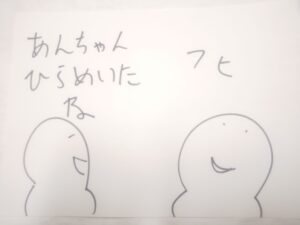 あんちゃん
ひらめいた
な
フヒ